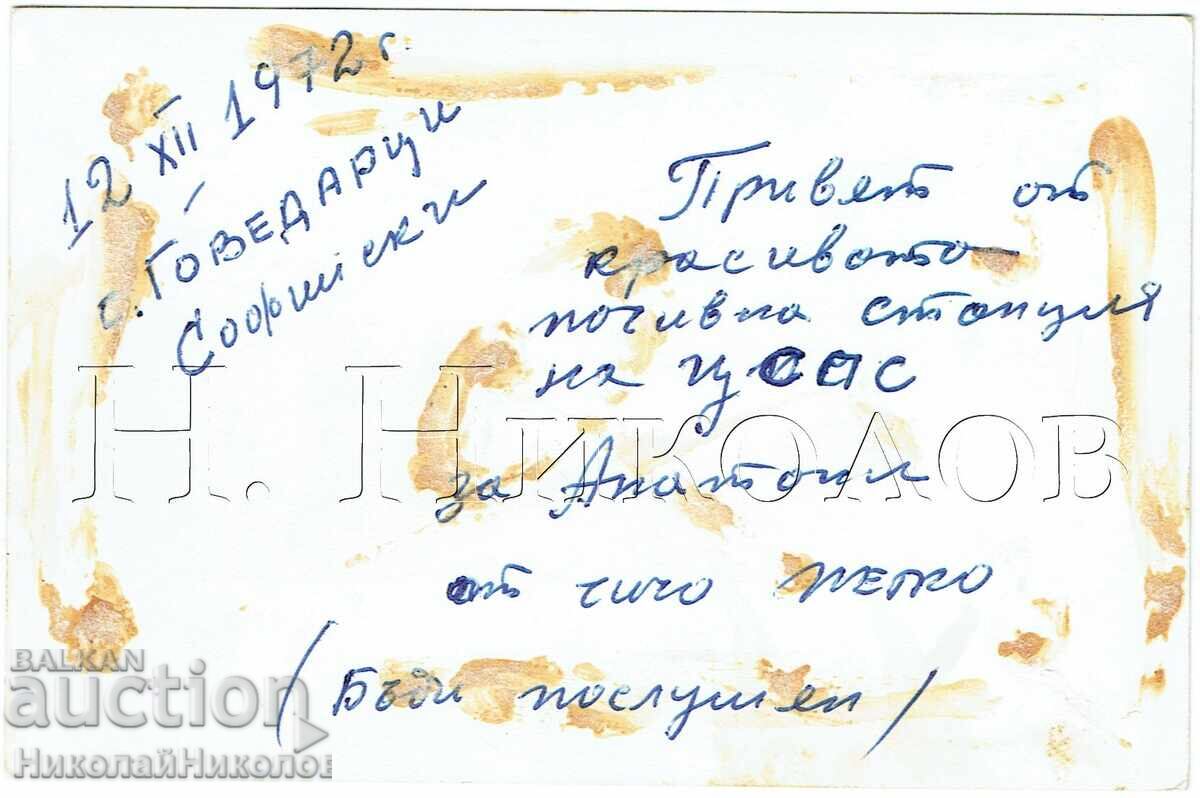 12 XII 1972 г.
с. ГОВЕДАРЦИ
Софийски
Привет от
красивата
почивна станция
на
за Анатоли
от чичо
/ Бъди послушен /
Н. Николов
BALKAN
auction
НиколайНиколов